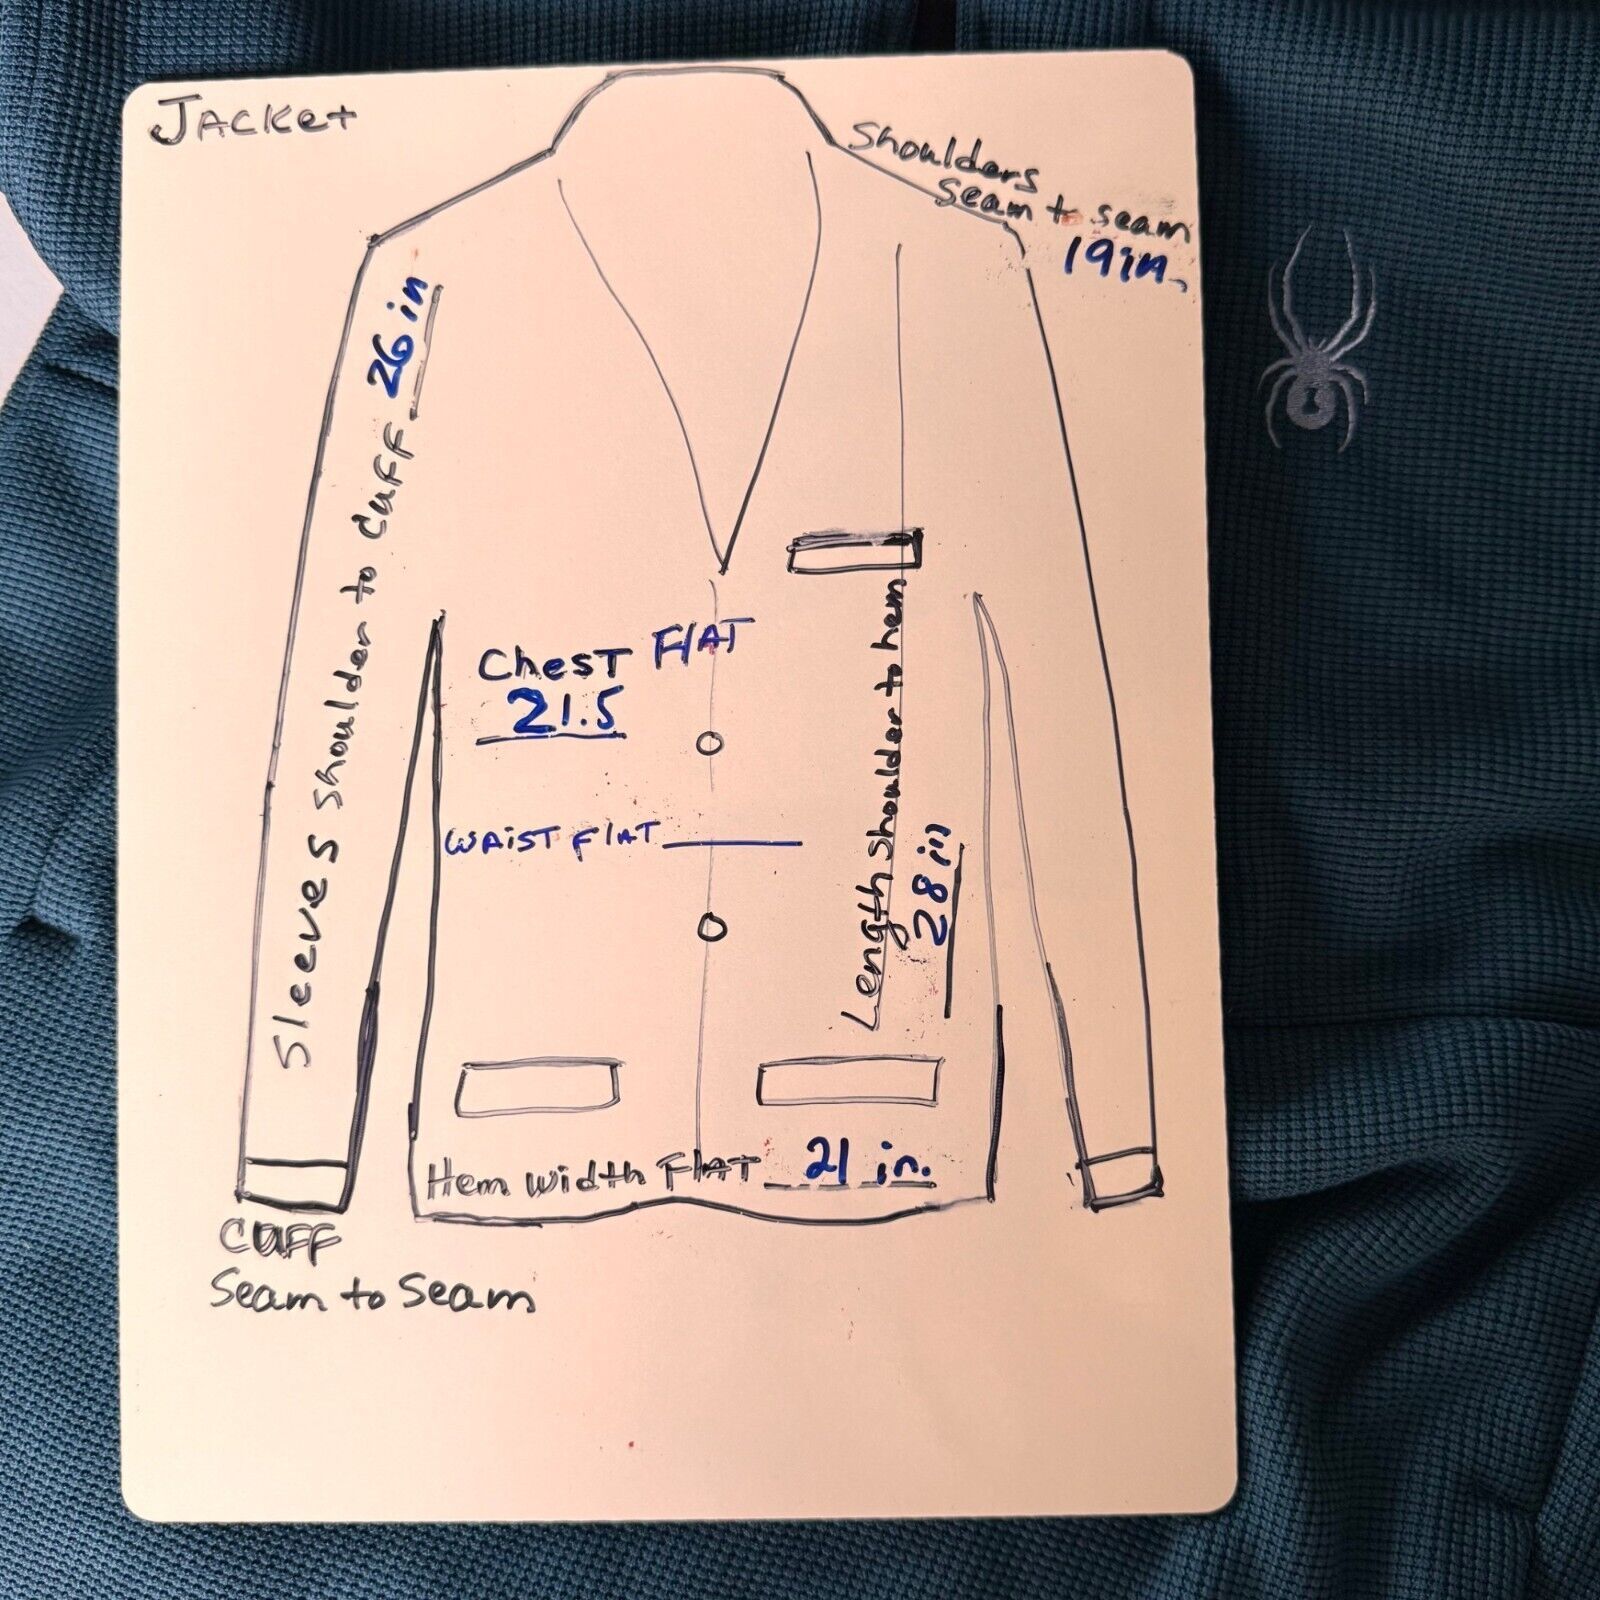 Jacket
Shoulders
Seam to seam
19 in.
Sleeves shoulder to cuff 26 in
Chest Flat
21.5
Waist Flat
Length shoulder to hem
28 in
Hem width Flat 21 in.
Cuff
Seam to Seam